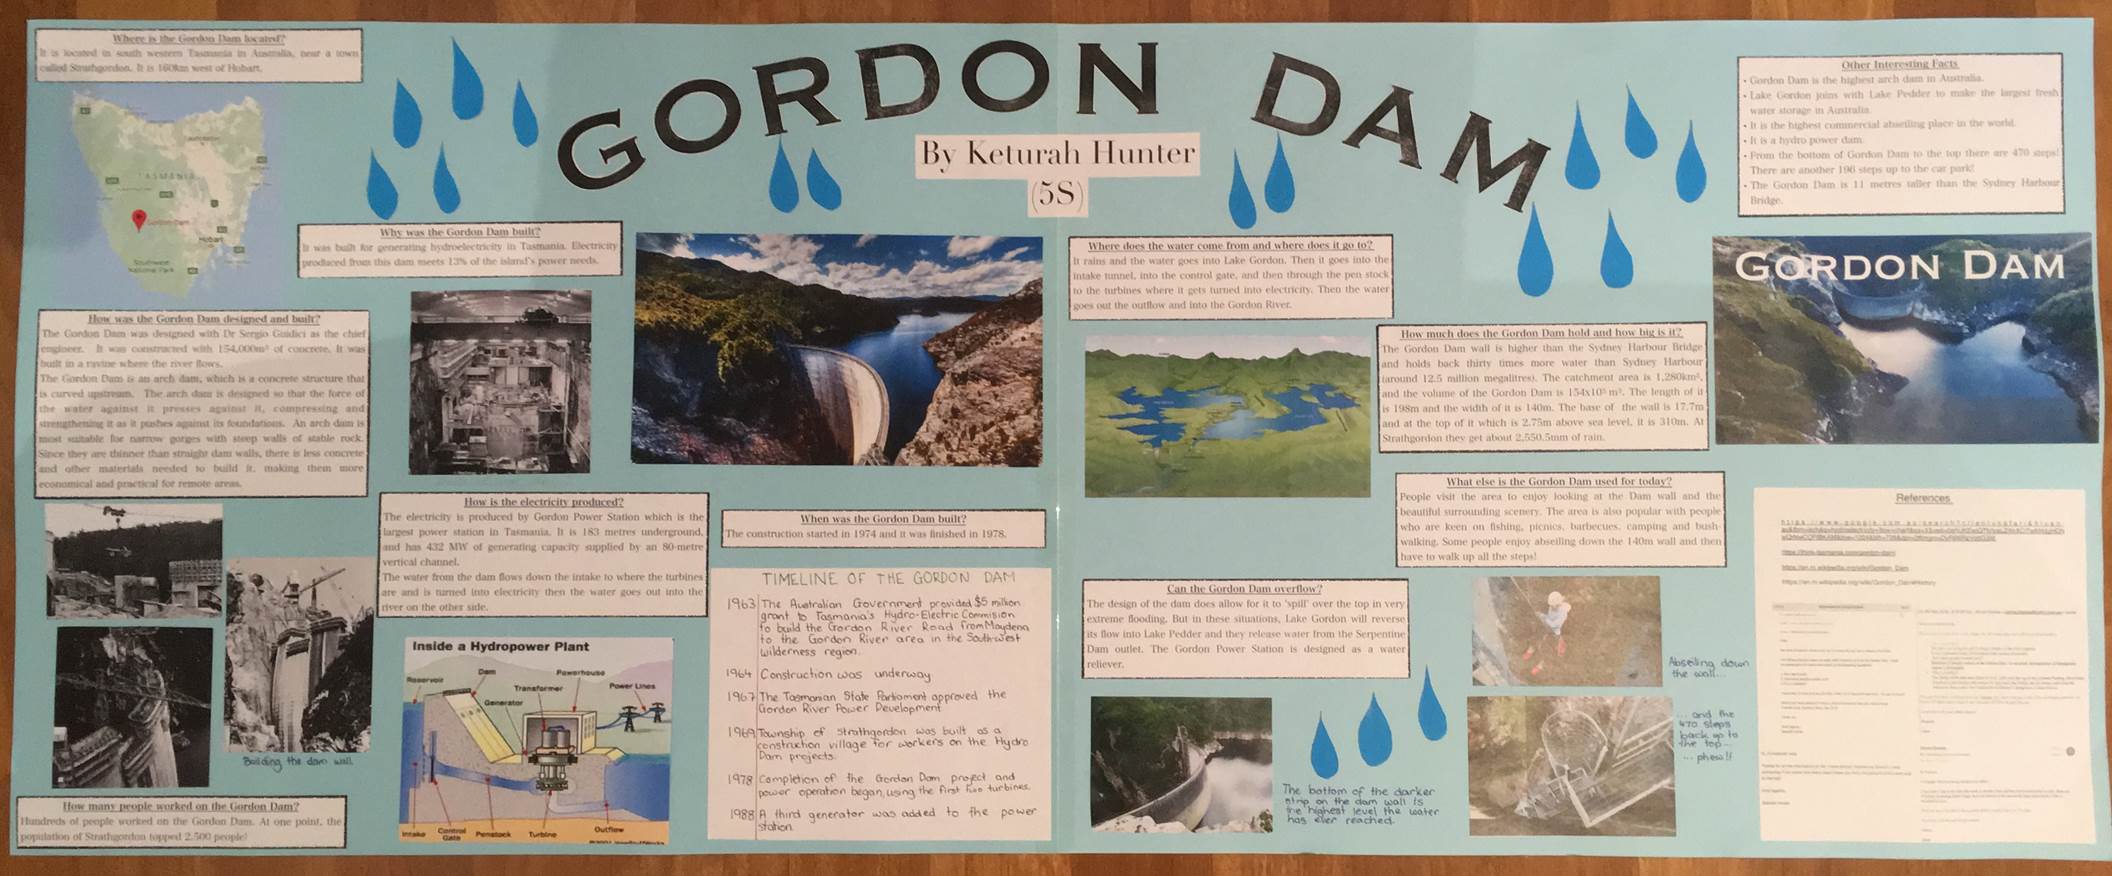 GORDON DAM
By Keturah Hunter
(5S)
Where is the Gordon Dam located?
It is located in south western Tasmania in Australia, near a town
called Strathgordon. It is 160km west of Hobart.
TASMANIA
Gordon Dam
Hobart
Southwest
National Park
Why was the Gordon Dam built?
It was built for generating hydroelectricity in Tasmania. Electricity
produced from this dam meets 13% of the island's power needs.
How was the Gordon Dam designed and built?
The Gordon Dam was designed with Dr Sergio Guidici as the chief
engineer. It was constructed with 154,000m³ of concrete. It was
built in a ravine where the river flows.
The Gordon Dam is an arch dam, which is a concrete structure that
is curved upstream. The arch dam is designed so that the force of
the water against it presses against it, compressing and
strengthening it as it pushes against its foundations. An arch dam is
most suitable for narrow gorges with steep walls of stable rock.
Since they are thinner than straight dam walls, there is less concrete
and other materials needed to build it, making them more
economical and practical for remote areas.
Building the dam wall
How many people worked on the Gordon Dam?
Hundreds of people worked on the Gordon Dam. At one point, the
population of Strathgordon topped 2,500 people!
How is the electricity produced?
The electricity is produced by Gordon Power Station which is the
largest power station in Tasmania. It is 183 metres underground,
and has 432 MW of generating capacity supplied by an 80-metre
vertical channel.
The water from the dam flows down the intake to where the turbines
are and is turned into electricity then the water goes out into the
river on the other side.
Inside a Hydropower Plant
Reservoir
Dam
Powerhouse
Transformer
Power Lines
Generator
Intake
Control
Gate
Penstock
Turbine
Outflow
When was the Gordon Dam built?
The construction started in 1974 and it was finished in 1978.
TIMELINE OF THE GORDON DAM
1963 The Australian Government provided $5 million
grant to Tasmania's Hydro-Electric Commision
to build the Gordon River Road from Maydena
to the Gordon River area in the Southwest
wilderness region.
1964 Construction was underway
1967 The Tasmanian State Parliament approved the
Gordon River Power Development
1969 Township of Strathgordon was built as a
construction village for workers on the Hydro
Dam projects.
1978 Completion of the Gordon Dam project and
power operation began, using the first two turbines.
1988 A third generator was added to the power
station.
Where does the water come from and where does it go to?
It rains and the water goes into Lake Gordon. Then it goes into the
intake tunnel, into the control gate, and then through the pen stock
to the turbines where it gets turned into electricity. Then the water
goes out the outflow and into the Gordon River.
How much does the Gordon Dam hold and how big is it?
The Gordon Dam wall is higher than the Sydney Harbour Bridge
and holds back thirty times more water than Sydney Harbour
(around 12.5 million megalitres). The catchment area is 1,280km²,
and the volume of the Gordon Dam is 154x10³ m³. The length of it
is 198m and the width of it is 140m. The base of the wall is 17.7m
and at the top of it which is 2.75m above sea level, it is 310m. At
Strathgordon they get about 2,550.5mm of rain.
What else is the Gordon Dam used for today?
People visit the area to enjoy looking at the Dam wall and the
beautiful surrounding scenery. The area is also popular with people
who are keen on fishing, picnics, barbecues, camping and bush-
walking. Some people enjoy abseiling down the 140m wall and then
have to walk up all the steps!
Can the Gordon Dam overflow?
The design of the dam does allow for it to 'spill' over the top in very
extreme flooding. But in these situations, Lake Gordon will reverse
its flow into Lake Pedder and they release water from the Serpentine
Dam outlet. The Gordon Power Station is designed as a water
reliever.
The bottom of the darker
strip on the dam wall is
the highest level the water
has ever reached.
Abseiling down
the wall...
... and the
470 steps
back up to
the top...
... phew!!
Other Interesting Facts
• Gordon Dam is the highest arch dam in Australia.
• Lake Gordon joins with Lake Pedder to make the largest fresh
water storage in Australia.
• It is the highest commercial abseiling place in the world.
• It is a hydro power dam.
• From the bottom of Gordon Dam to the top there are 470 steps!
There are another 196 steps up to the car park!
• The Gordon Dam is 11 metres taller than the Sydney Harbour
Bridge.
GORDON DAM
References
https://en.m.wikipedia.org/wiki/Gordon_Dam
https://en.m.wikipedia.org/wiki/Gordon_Dam#History